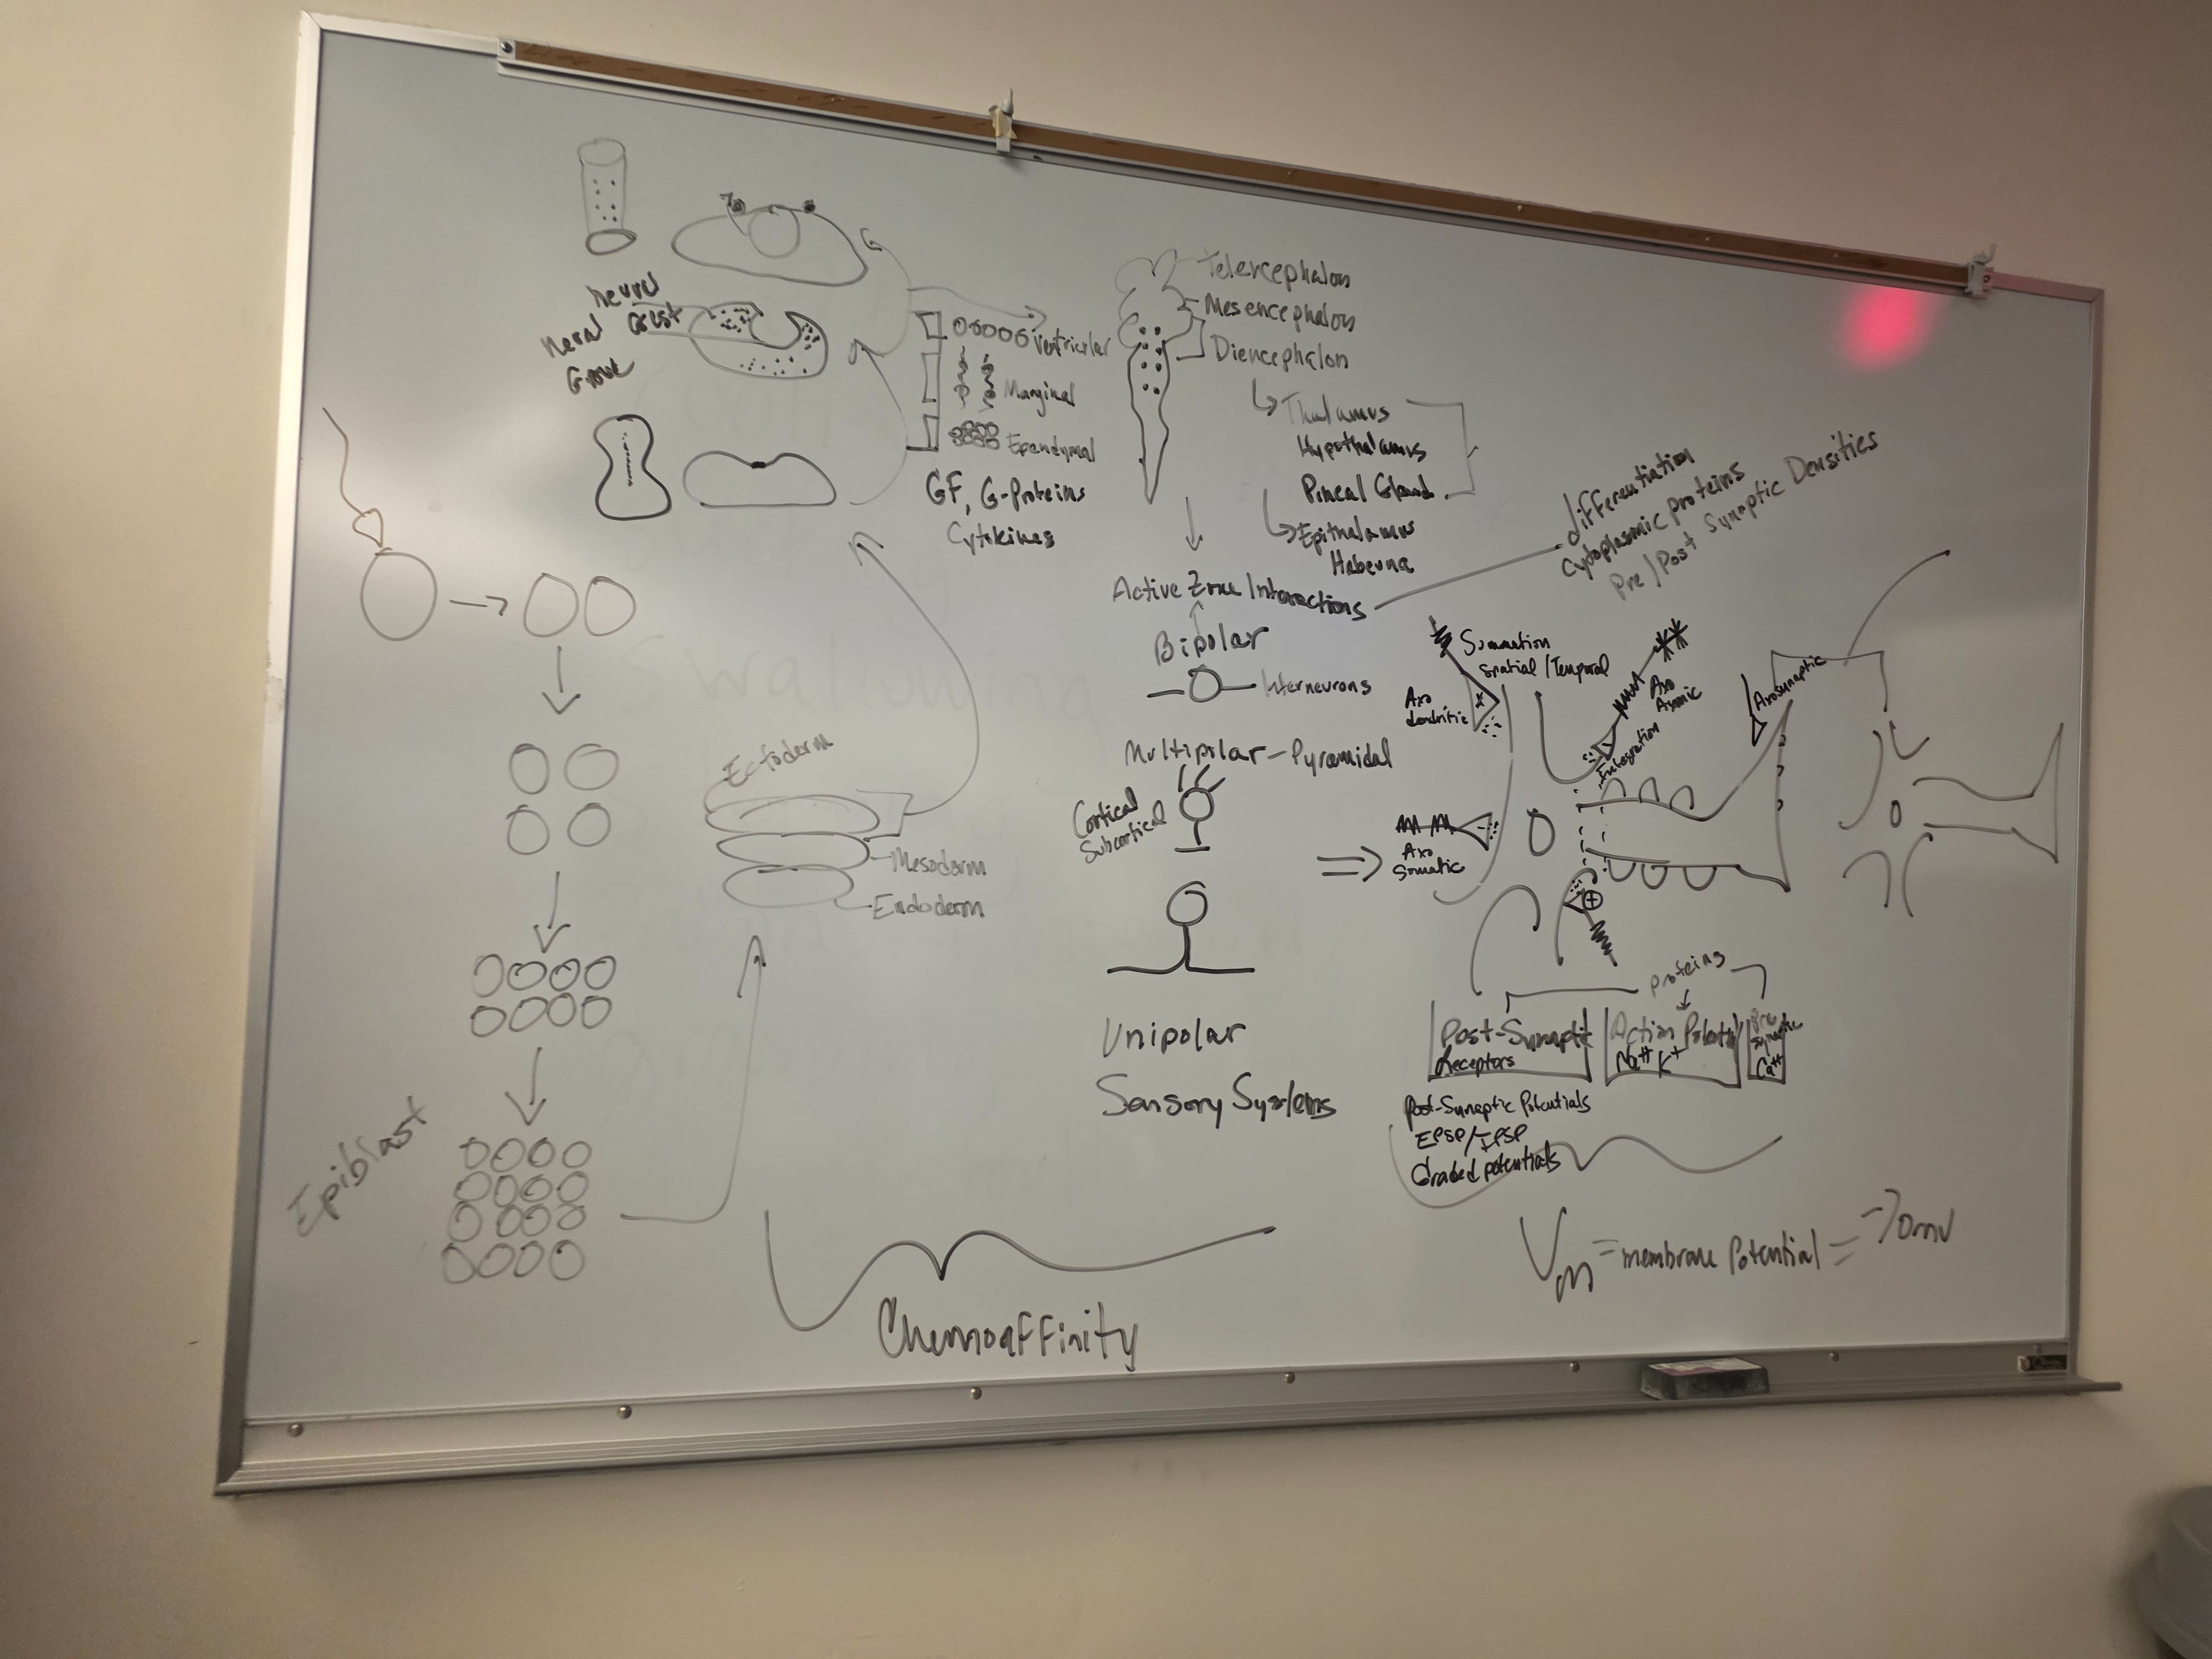 neural
crest
Neral
Grove
Ventricular
Marginal
Ependymal
GF, G-Proteins
Cytokines
Telencephalon
Mesencephalon
Diencephalon
Thalamus
Hypothalamus
Pineal Gland
Epithalamus
Habenua
differentiation
Cytoplasmic proteins
Pre/Post Synaptic Densities
Active Zone Interactions
Bipolar
Interneurons
Multipolar - Pyramidal
Cortical
Subcortical
Unipolar
Sensory Systems
Epiblast
Ectoderm
Mesoderm
Endoderm
Swallowing
Chemoaffinity
Summation
Spatial/Temporal
Axo
dendritic
Axo
Axonic
Integration
Axosynaptic
Axo
Somatic
proteins
Post-Synaptic
Receptors
Action Potential
Na++ K+
Pre
synaptic
Ca++
Post-Synaptic Potentials
EPSP/IPSP
Graded potentials
Vm = membrane Potential = -70mV